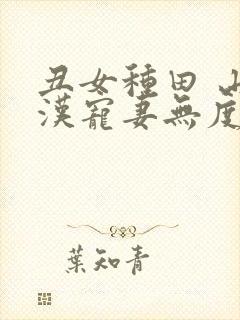 丑女種田 山
漢寵妻無度
葉知青